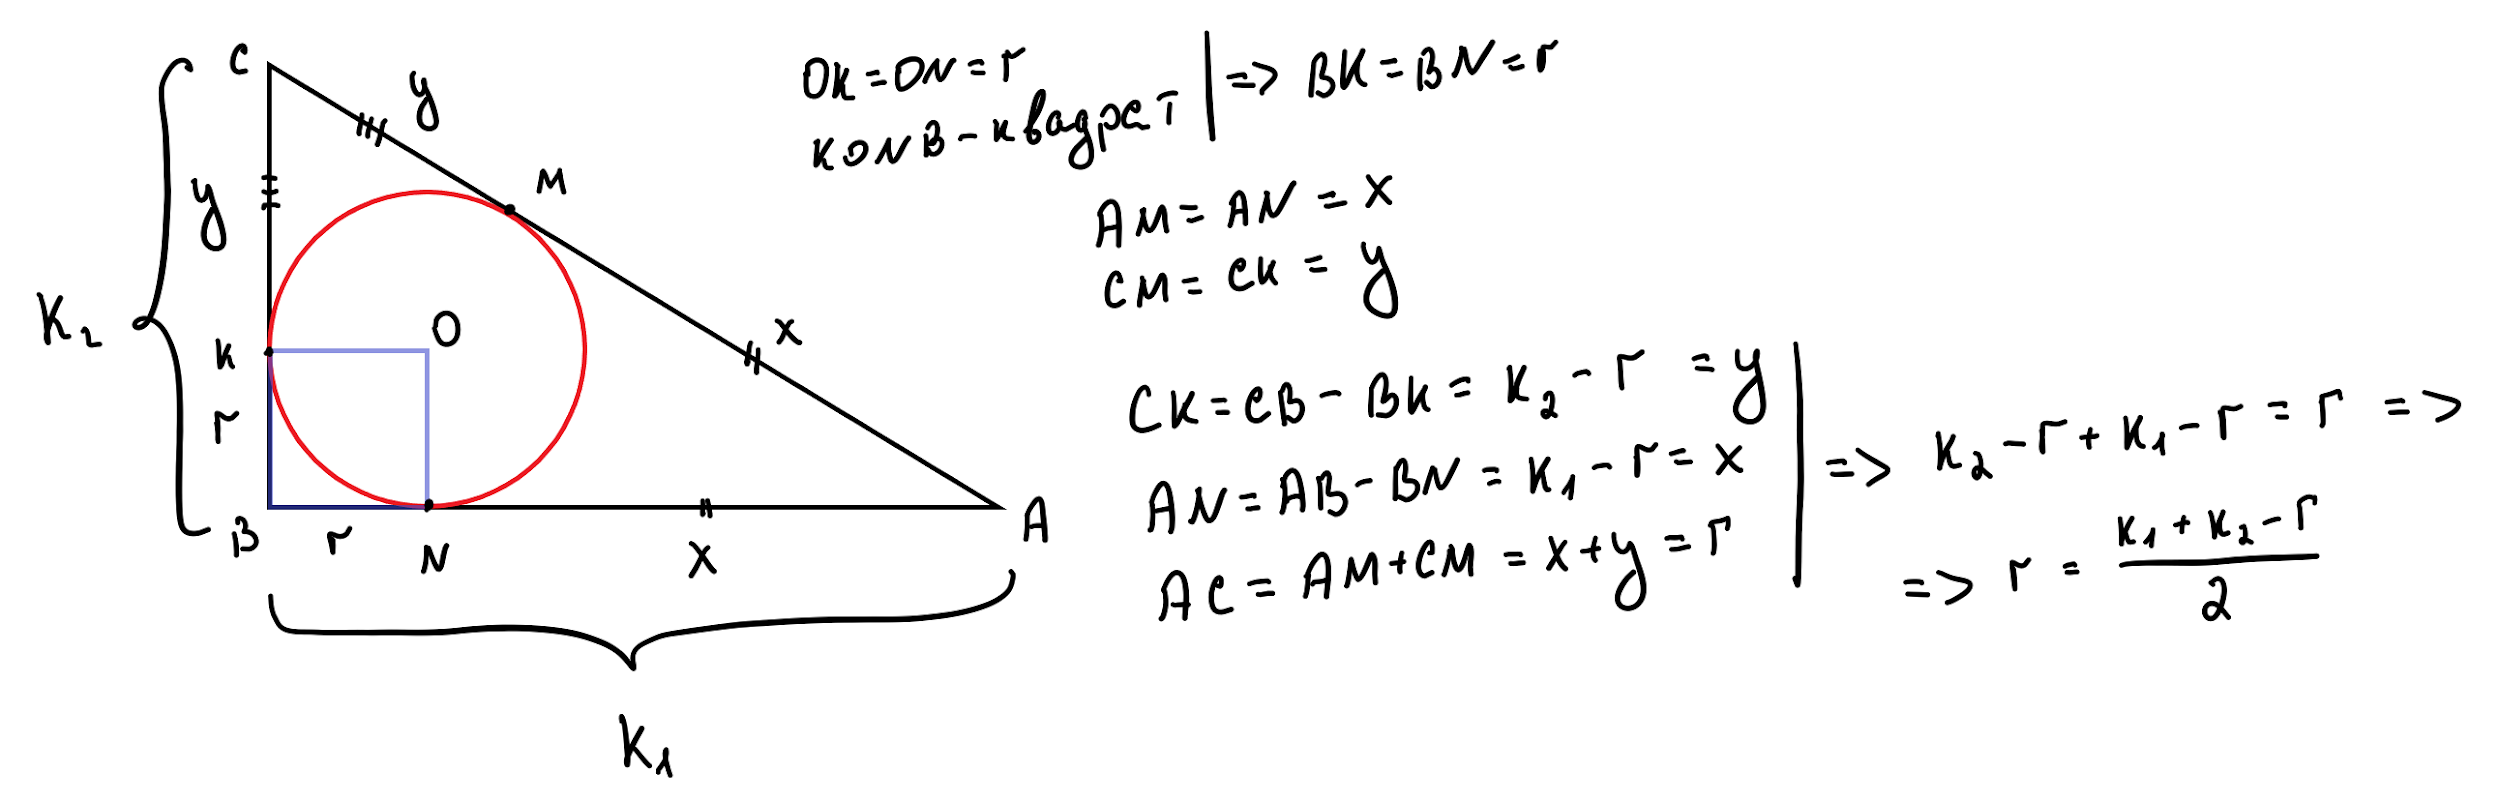 C
y
M
y
K₂
O
x
K
r
B
r
N
x
A
K₁
OK = ON = r
KONB - квадрат
=> BK = BN = r
AM = AN = x
CM = CK = y
CK = CB - BK = K₂ - r = y
AN = AB - BN = K₁ - r = x
AC = AM + CM = x + y = r
=> K₂ - r + K₁ - r = r =>
=> r = (K₁ + K₂ - r) / 2